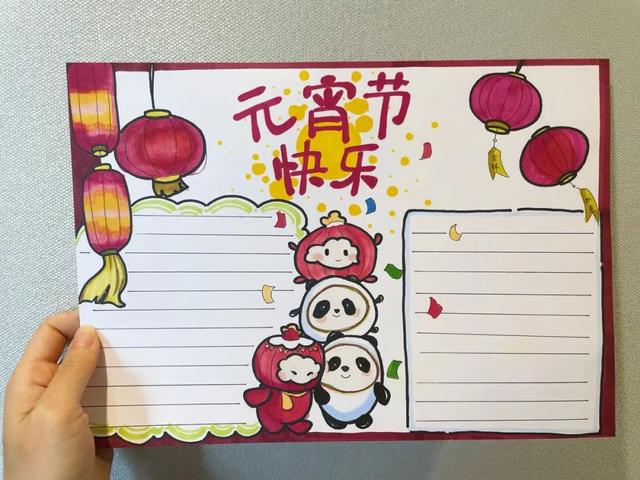 元宵节
快乐